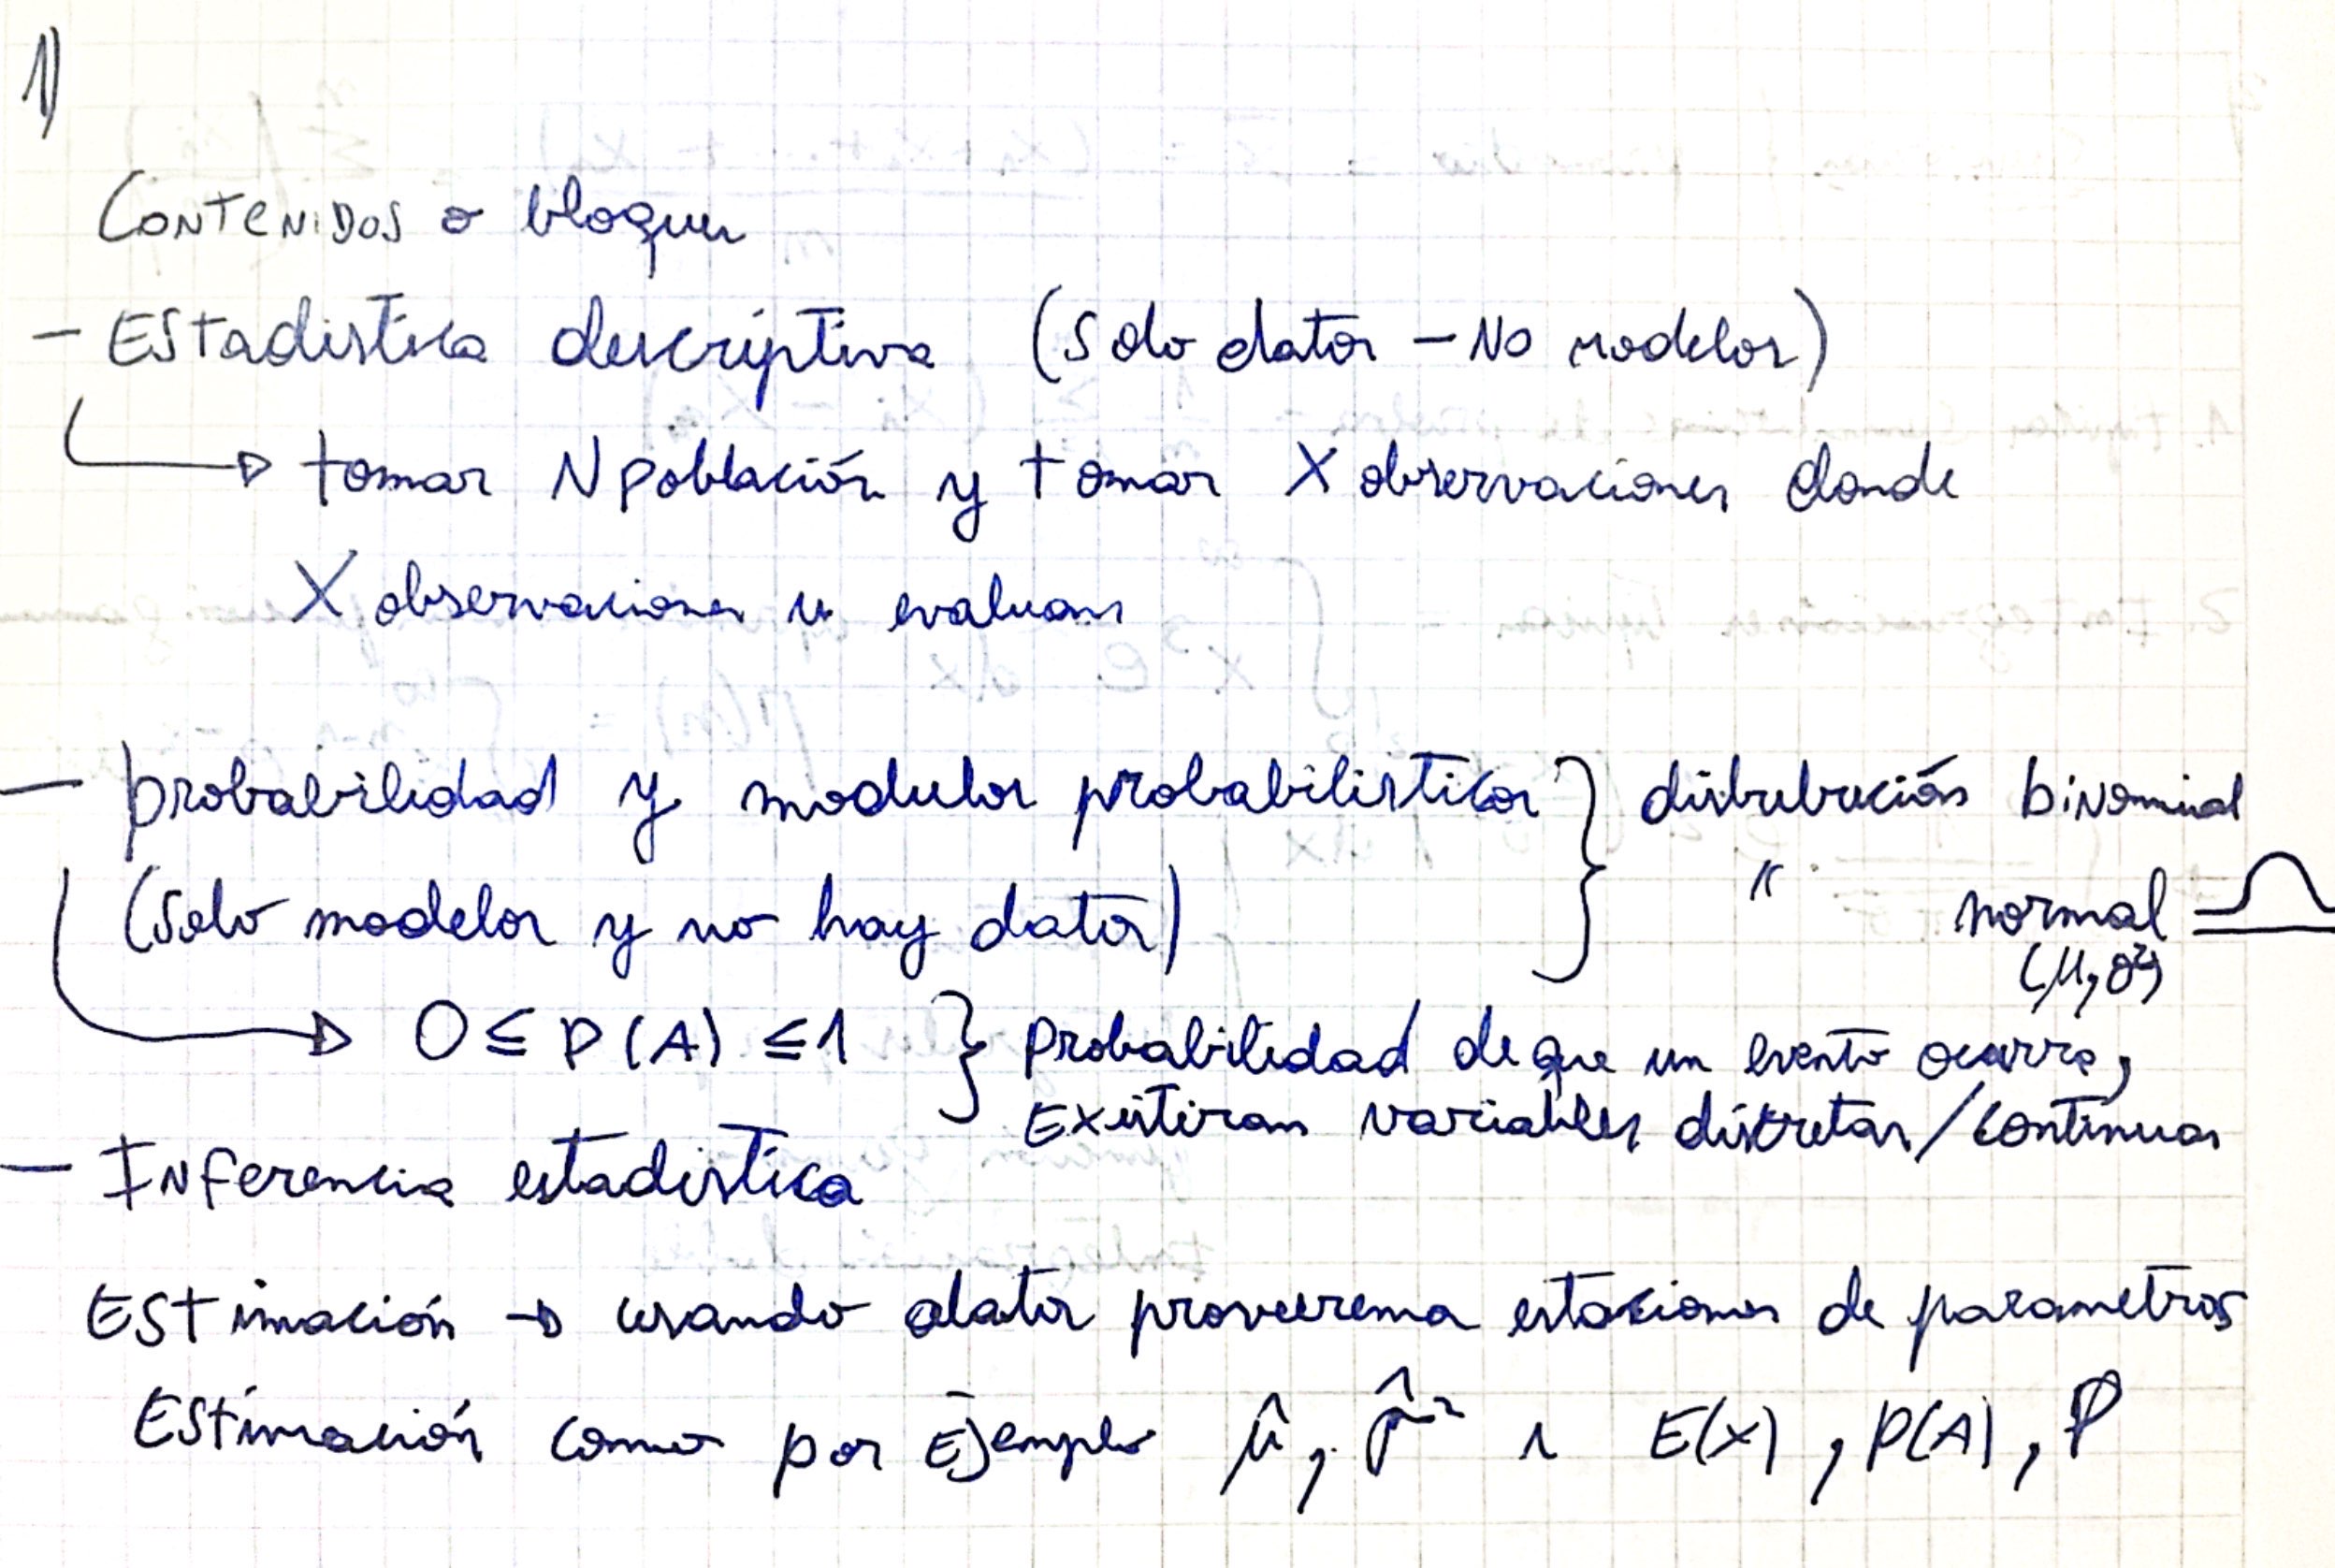 1)
Contenidos o bloques
- Estadistica descriptiva (Solo datos - No modelos)
tomar N población y tomar X observaciones donde
X observaciones se evaluan
- probabilidad y modulos probabilisticos } distribución binomial
(solo modelos y no hay datos) " normal
(μ, σ²)
0 ≤ P(A) ≤ 1 } Probabilidad de que un evento ocurra,
Existiran variables discretas/continuas
- Inferencia estadistica
Estimación → usando datos de parametros
Estimación como por Ejemplo μ̂, E(x), P(A), P